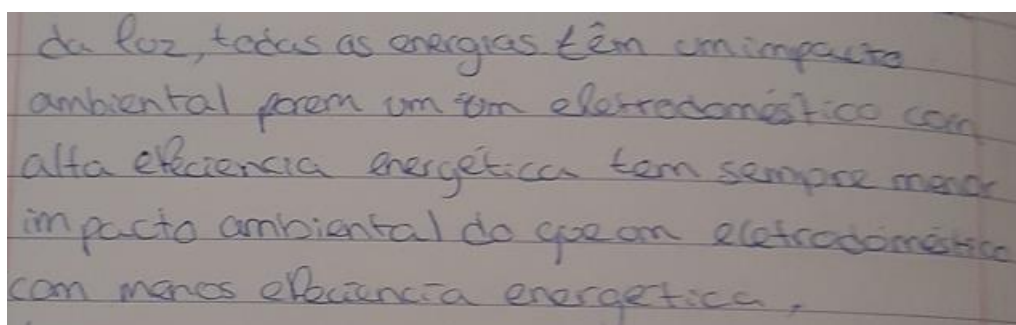 da luz, todas as energias têm um impacto
ambiental porem um um eletrodoméstico com
alta efeciencia energética tem sempre menor
impacto ambiental do que um eletrodoméstico
com menos efeciencia energetica,